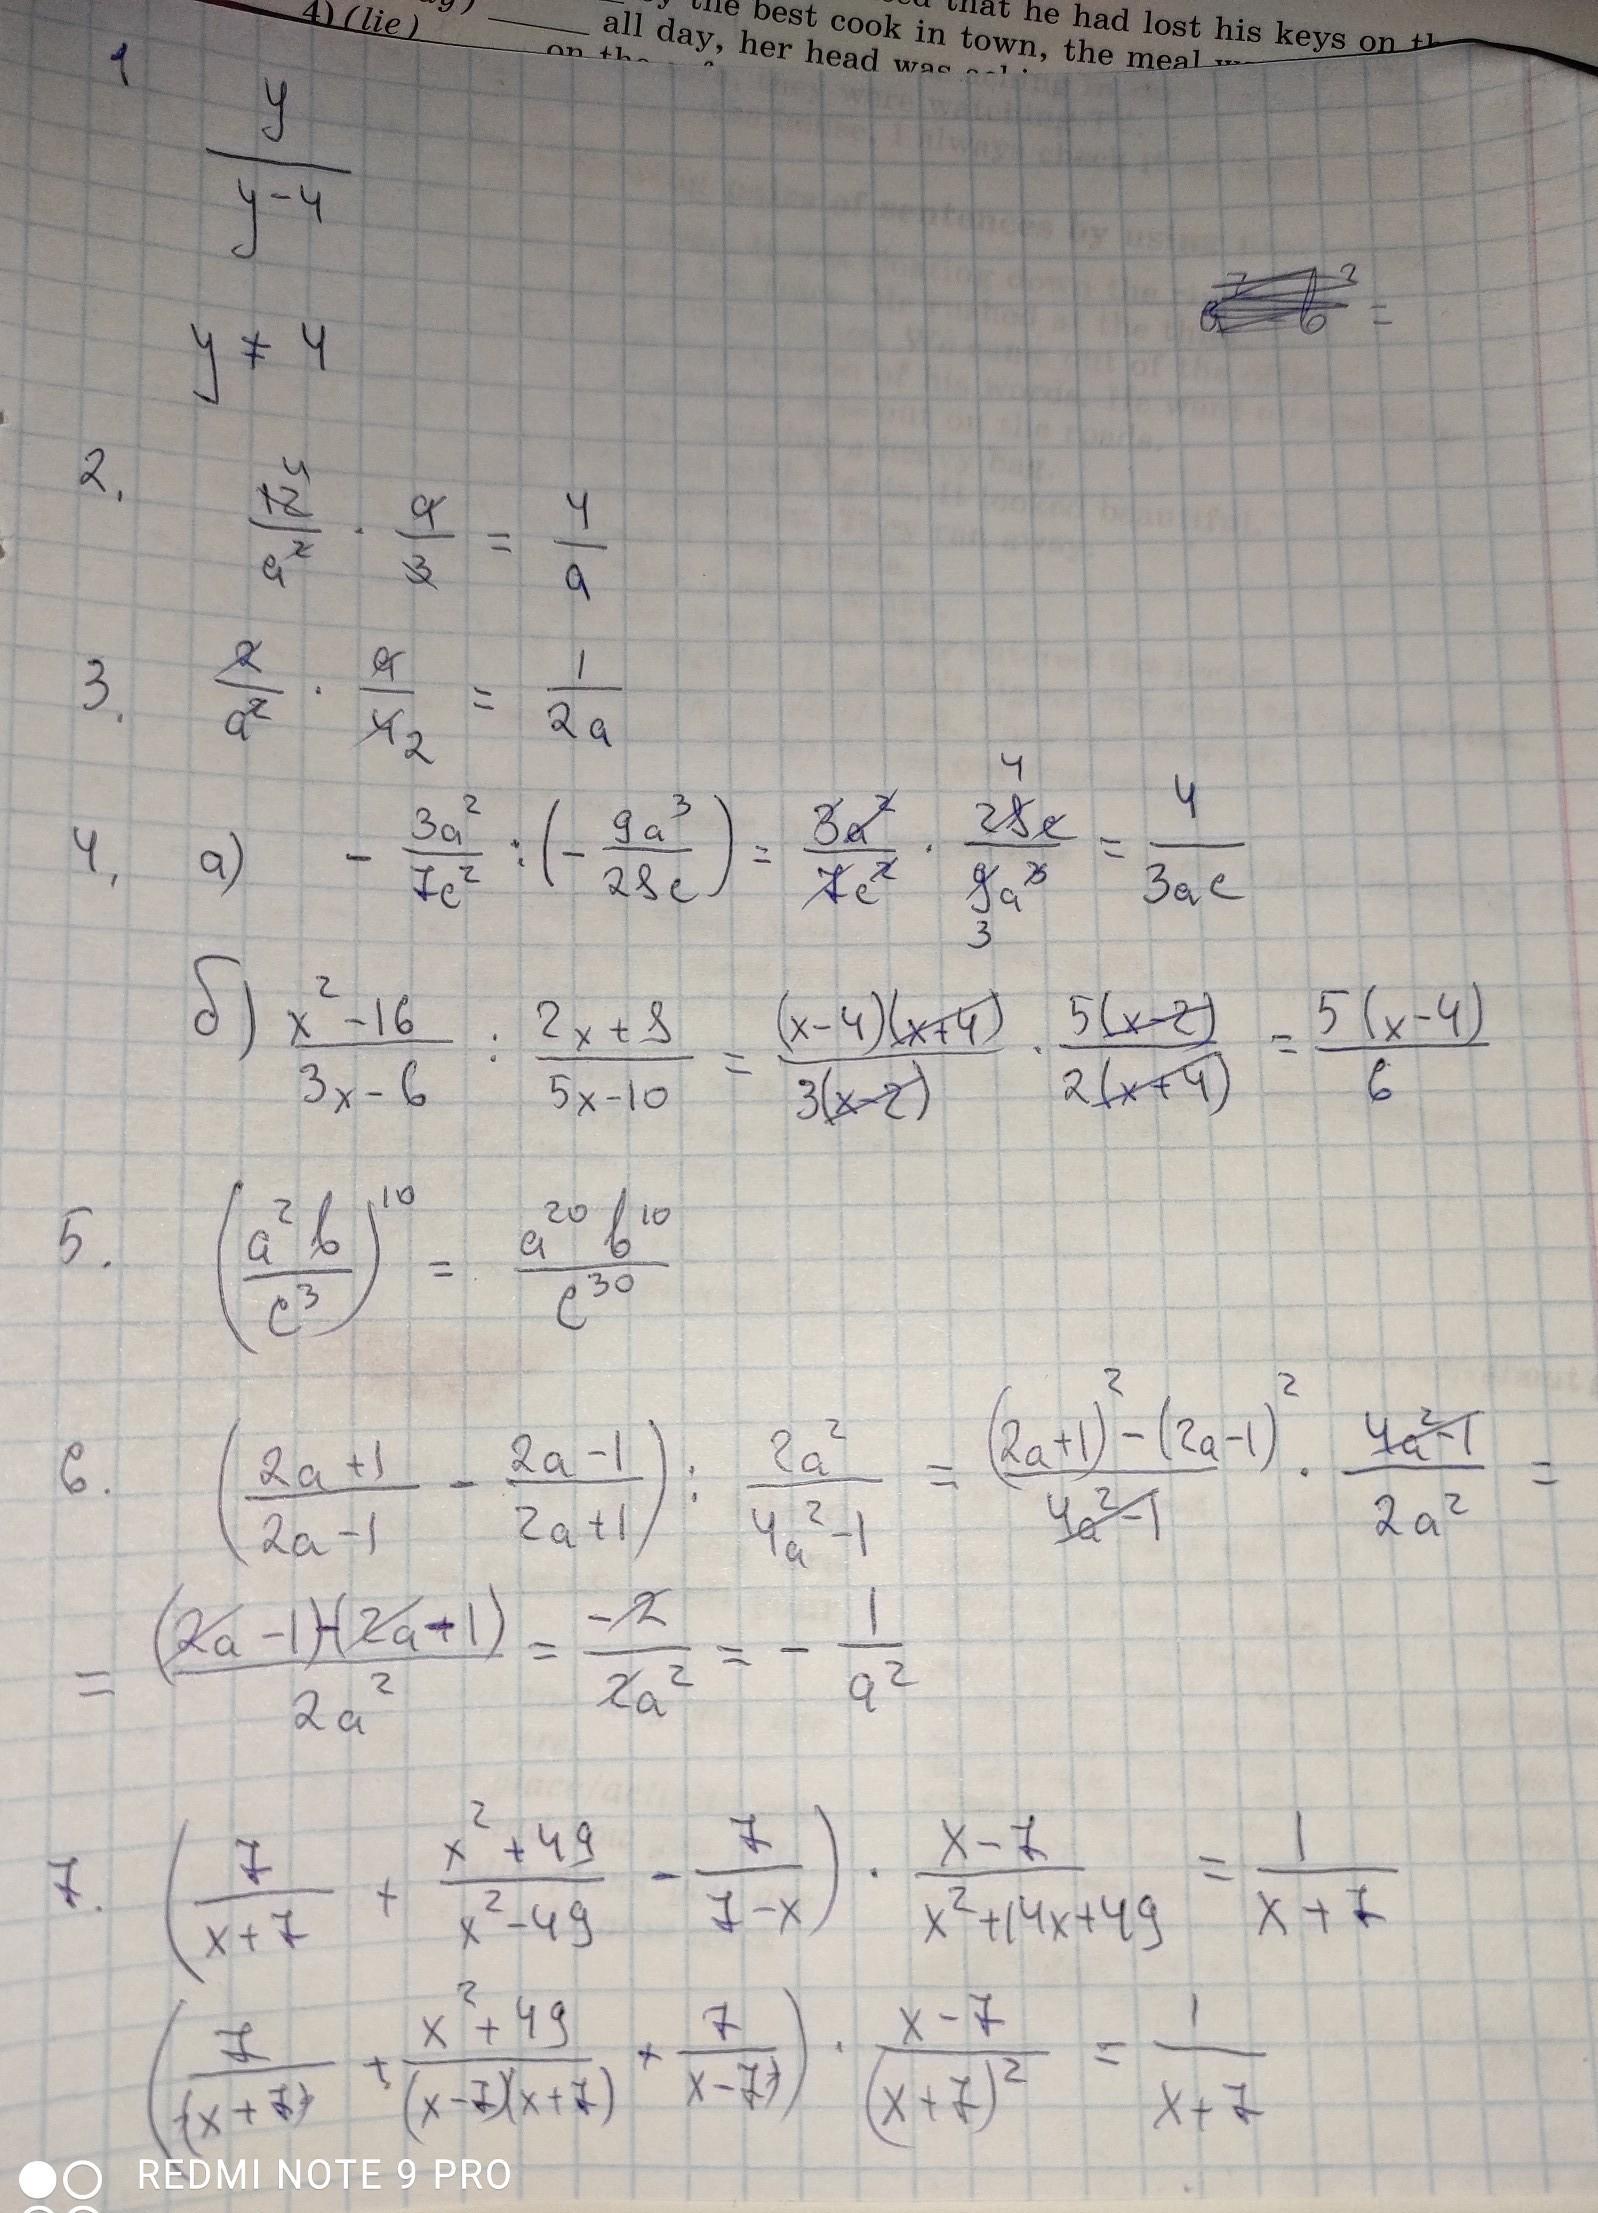 4) (lie) ____ all day, her head was
the best cook in town, the meal
that he had lost his keys on
on the
1
y/(y-4)
y ≠ 4
2. 12/a² · a/3 = 4/a
3. 2/a² · a/4 = 1/2a
4. а) - 3a²/7c² : (- 9a³/28c) = 3a²/7c² · 28c/9a³ = 4/3ac
б) (x²-16)/(3x-6) : (2x+8)/(5x-10) = (x-4)(x+4)/3(x-2) · 5(x-2)/2(x+4) = 5(x-4)/6
5. (a²b/c³)¹⁰ = a²⁰b¹⁰/c³⁰
6. ((2a+1)/(2a-1) - (2a-1)/(2a+1)) : 2a²/(4a²-1) = ((2a+1)² - (2a-1)²)/(4a²-1) · (4a²-1)/2a² =
= ((2a-1)-(2a+1))/2a² = -2/2a² = - 1/a²
7. (7/(x+7) + (x²+49)/(x²-49) - 7/(7-x)) · (x-7)/(x²+14x+49) = 1/(x+7)
(7/(x+7) + (x²+49)/(x-7)(x+7) + 7/(x-7)) · (x-7)/(x+7)² = 1/(x+7)
REDMI NOTE 9 PRO